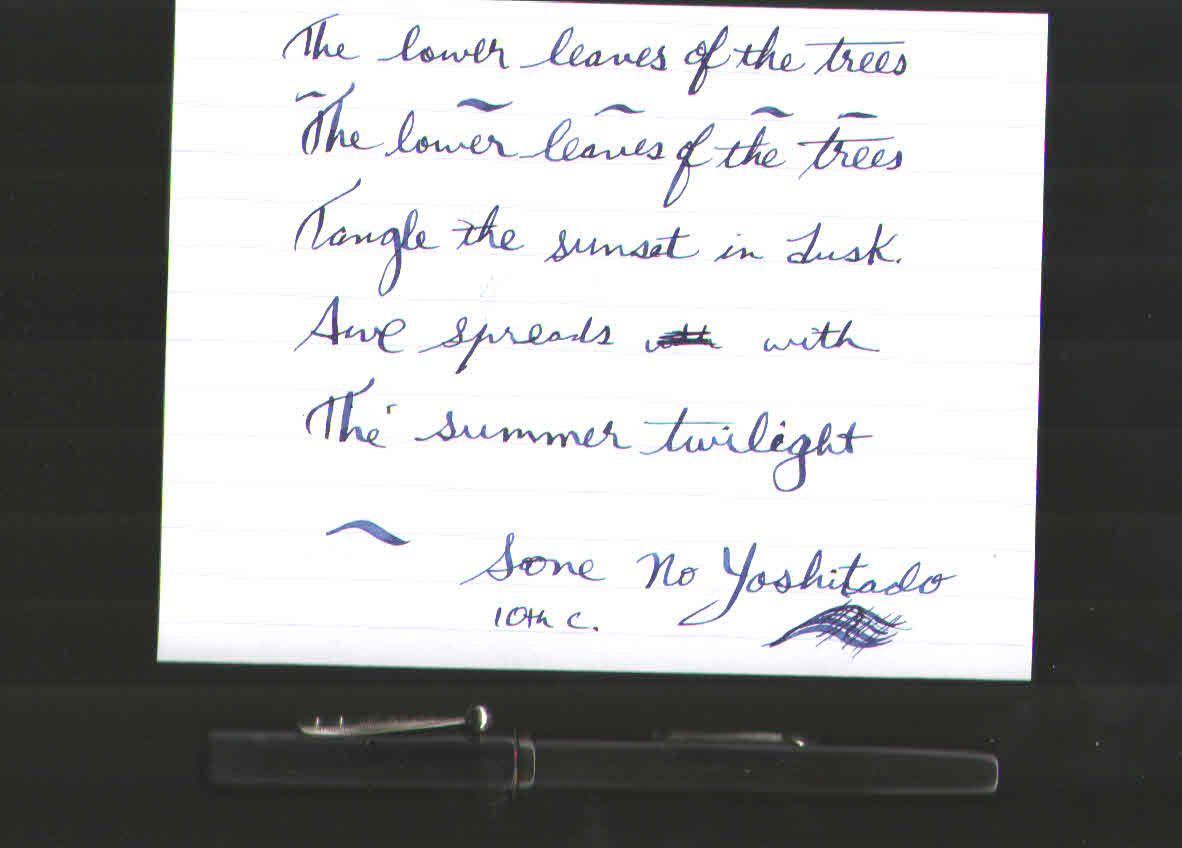 The lower leaves of the trees
The lower leaves of the trees
Tangle the sunset in dusk.
Awe spreads with
The summer twilight
Sone No Yoshitado
10th C.